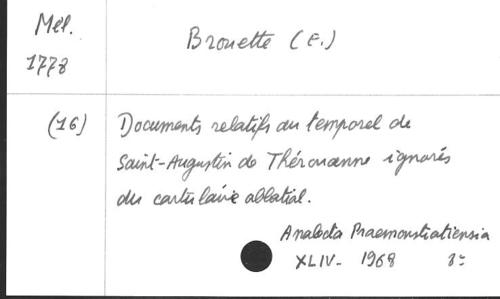 Mél.
1778
Brouette (E.)
(16)
Documents relatifs au temporel de
Saint-Augustin de Thérouanne ignorés
du cartulaire abbatial.
Analecta Praemonstratiensia
XLIV - 1968 8°